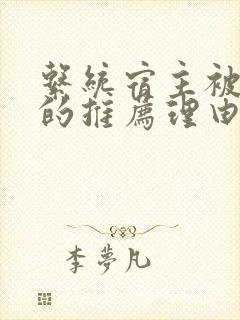 繫統宿主被
的推薦理由
李夢凡